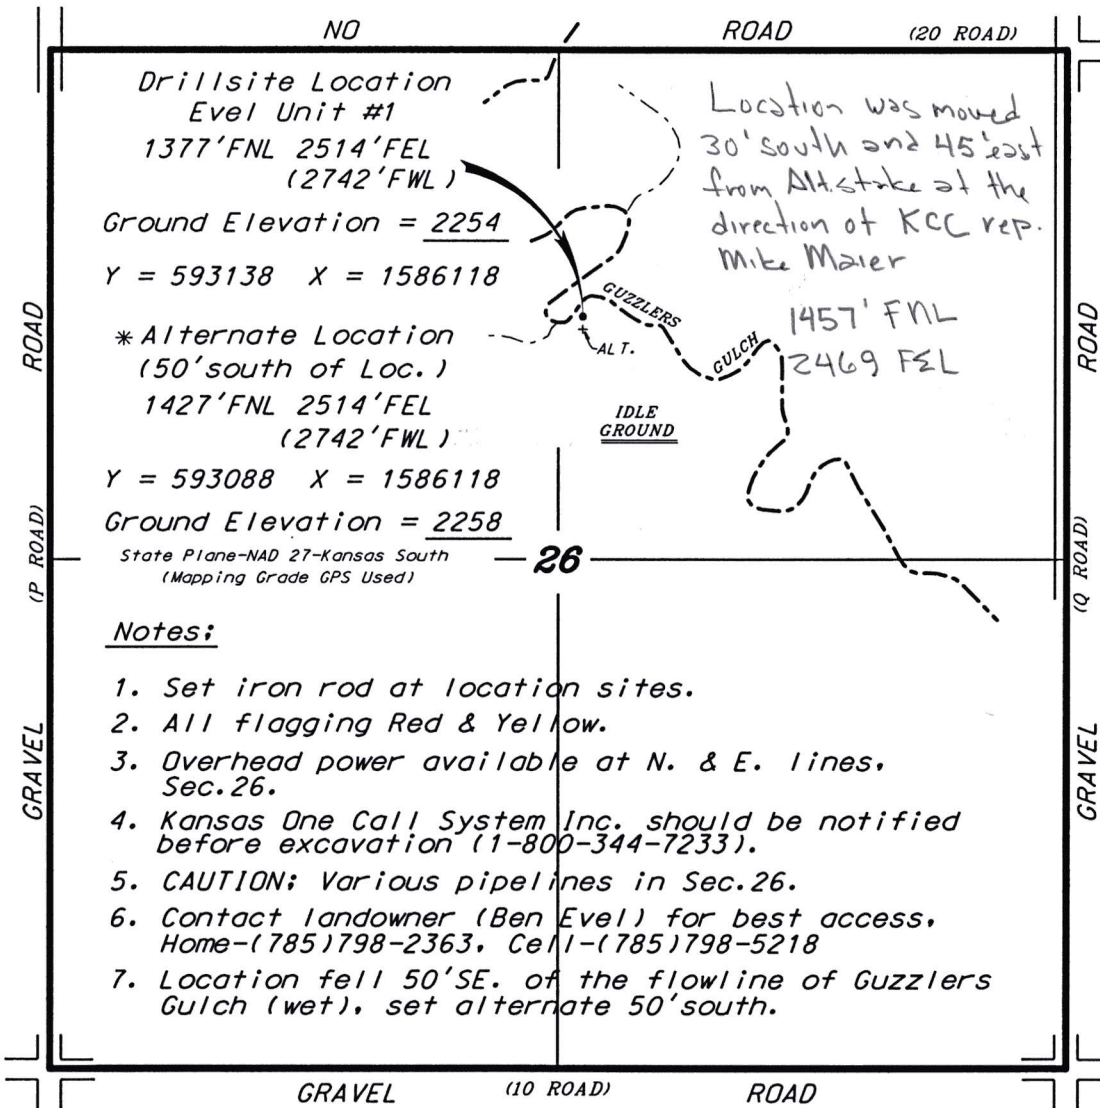 NO ROAD (20 ROAD)
Drillsite Location
Evel Unit #1
1377'FNL 2514'FEL
(2742'FWL)
Ground Elevation = 2254
Y = 593138 X = 1586118
*Alternate Location
(50'south of Loc.)
1427'FNL 2514'FEL
(2742'FWL)
Y = 593088 X = 1586118
Ground Elevation = 2258
State Plane-NAD 27-Kansas South
(Mapping Grade GPS Used)
Location was moved
30' south and 45' east
from Alt. stake at the
direction of KCC rep.
Mike Maier
1457' FNL
2469 FEL
GUZZLERS
GULCH
ALT.
IDLE
GROUND
26
ROAD
(P ROAD)
GRAVEL
ROAD
(Q ROAD)
GRAVEL
Notes:
1. Set iron rod at location sites.
2. All flagging Red & Yellow.
3. Overhead power available at N. & E. lines,
Sec.26.
4. Kansas One Call System Inc. should be notified
before excavation (1-800-344-7233).
5. CAUTION: Various pipelines in Sec.26.
6. Contact landowner (Ben Evel) for best access,
Home-(785)798-2363, Cell-(785)798-5218
7. Location fell 50'SE. of the flowline of Guzzlers
Gulch (wet), set alternate 50'south.
GRAVEL (10 ROAD) ROAD